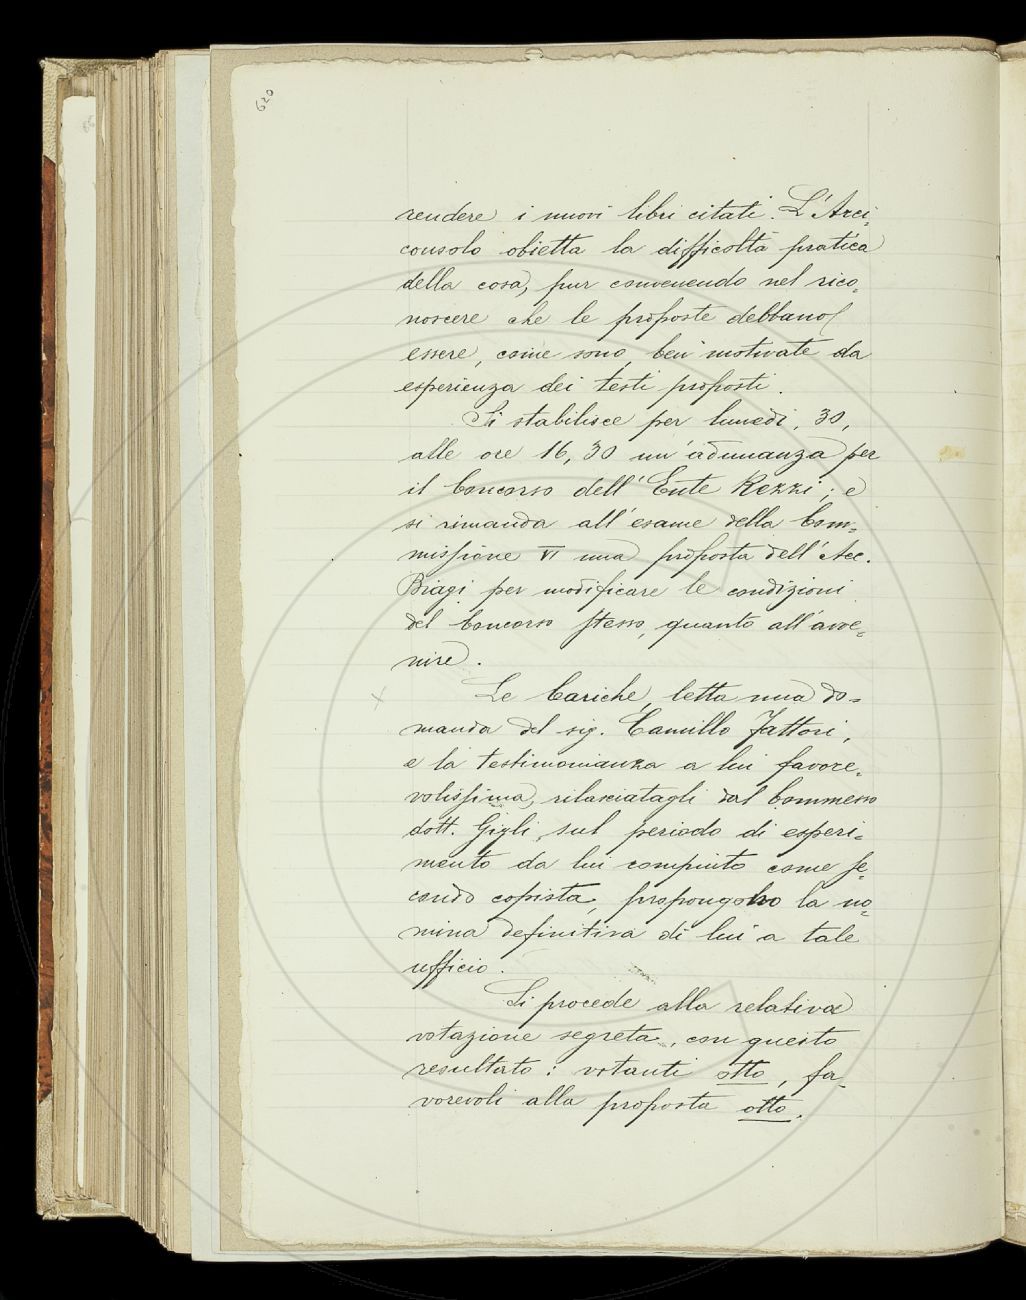 620
rendere i nuovi libri citati. L'Arci-
consolo obietta la difficoltà pratica
della cosa, pur convenendo nel rico-
noscere che le proposte debbano
essere, come sono, ben motivate da
esperienza dei testi proposti.
Si stabilisce per lunedì, 30,
alle ore 16,30 un'adunanza per
il Concorso dell'Ente Rezzi; e
si rimanda all'esame della Com-
missione VI una proposta dell'Acc.
Biagi per modificare le condizioni
del Concorso stesso, quanto all'avve-
nire.
Le Cariche, letta una do-
manda del sig. Camillo Fattori,
e la testimonianza a lui favore-
volissima, rilasciatagli dal Commesso
dott. Gigli, sul periodo di esperi-
mento da lui compiuto come se-
condo copista, propongono la no-
mina definitiva di lui a tale
ufficio.
Si procede alla relativa
votazione segreta, con questo
resultato: votanti otto, fa-
vorevoli alla proposta otto.